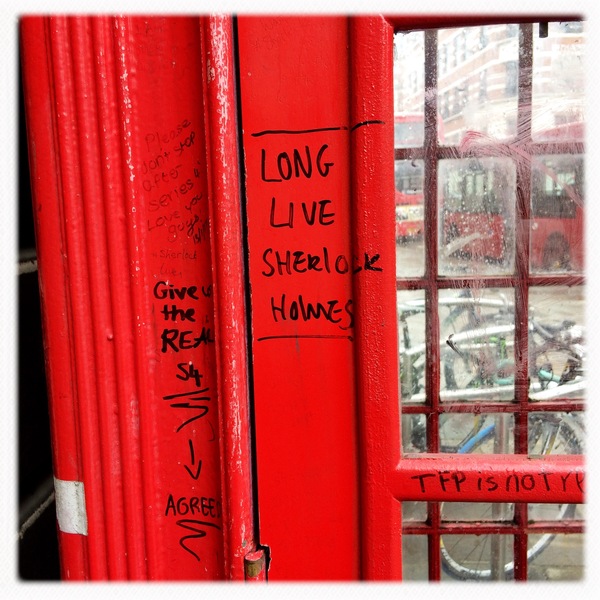 Please
don't stop
after
series 4
Love you
guys
Sherlock
live
Give
the
REAL
S4
AGREE
LONG
LIVE
SHERlOCK
HOlMES
TFP is not